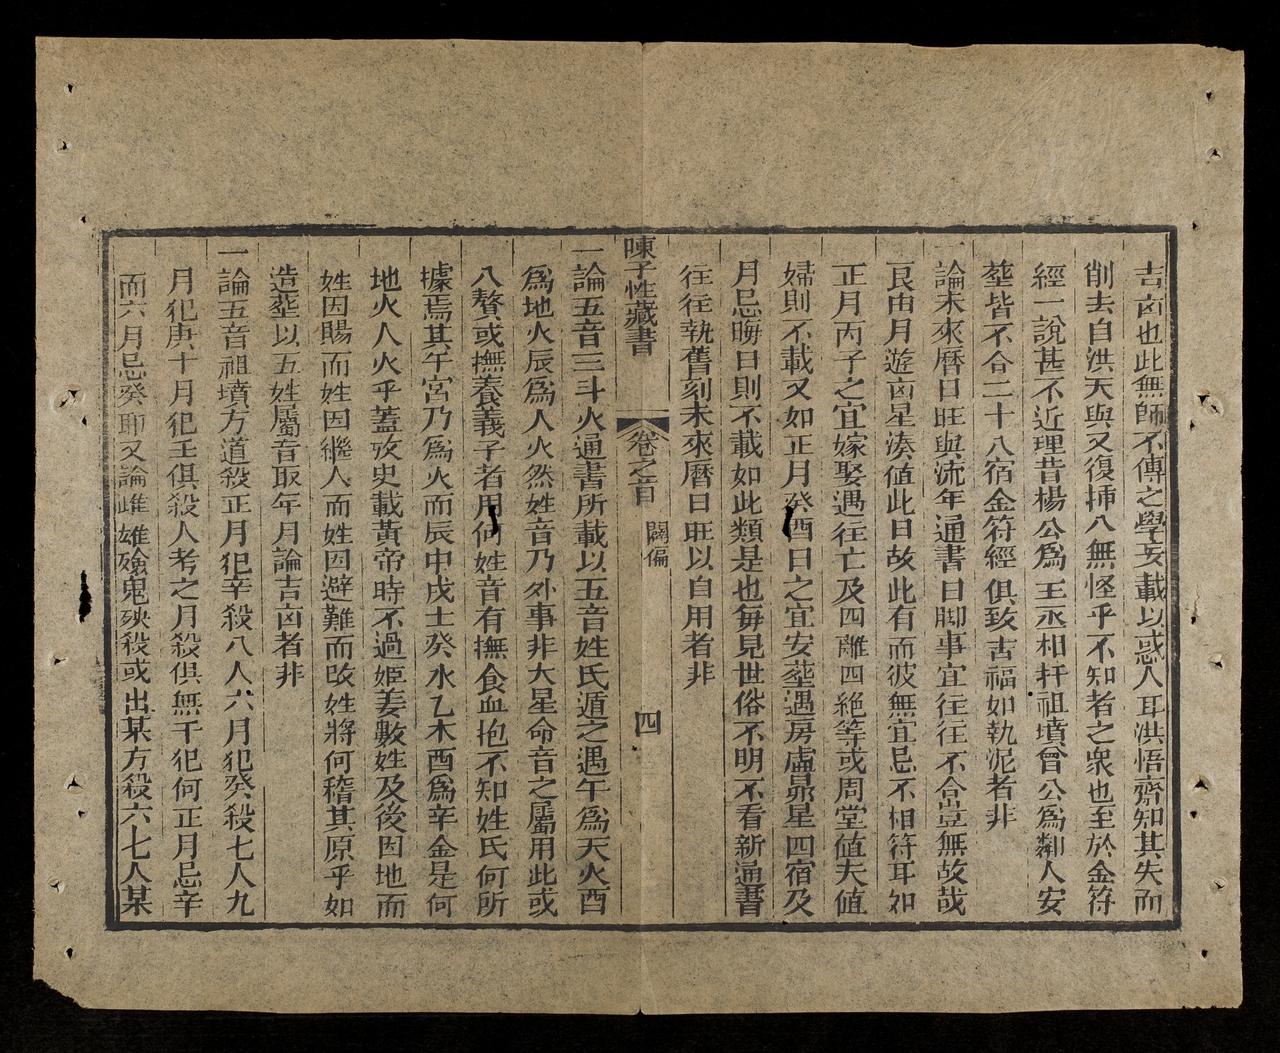 吉凶也此無師不傳之學妄載以惑人耳洪悟齋知其失而
削去自洪天與又復揷入無怪乎不知者之衆也至於金符
經一說甚不近理昔楊公爲王丞相扦祖墳曾公爲鄰人安
塟皆不合二十八宿金符經俱致吉福如執泥者非
一論未來曆日旺與流年通書日脚事宜往往不合豈無故哉
良由月遊凶星湊値此日故此有而彼無宜忌不相符耳如
正月丙子之宜嫁娶遇往亡及四離四絕等或周堂値夫値
婦則不載又如正月癸酉日之宜安塟遇房虛昴星四宿及
月忌晦日則不載如此類是也每見世俗不明不看新通書
往往執舊刻未來曆日旺以自用者非
陳子性藏書 卷之首 闢偏 四
一論五音三斗火通書所載以五音姓氏遁之遇午爲天火酉
爲地火辰爲人火然姓音乃外事非大星命音之屬用此或
八贅或撫養義子者用何姓音有撫食血抱不知姓氏何所
據焉其午宮乃爲火而辰中戊土癸水乙木酉爲辛金是何
地火人火乎蓋攷史載黃帝時不過姬姜數姓及後因地而
姓因賜而姓因繼人而姓因避難而改姓將何稽其原乎如
造塟以五姓屬音取年月論吉凶者非
一論五音祖墳方道殺正月犯辛殺八人六月犯癸殺七人九
月犯庚十月犯壬俱殺人考之月殺俱無干犯何正月忌辛
而六月忌癸耶又論雌雄殮鬼殃殺或出某方殺六七人某